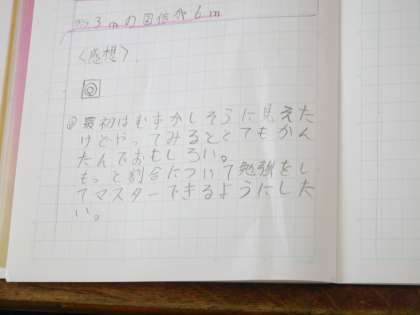 3mの□倍が6m
〈感想〉
◎
最初はむずかしそうに見えた
けどやってみるととてもかん
たんでおもしろい。
もっと割合について勉強をし
てマスターできるようにした
い。